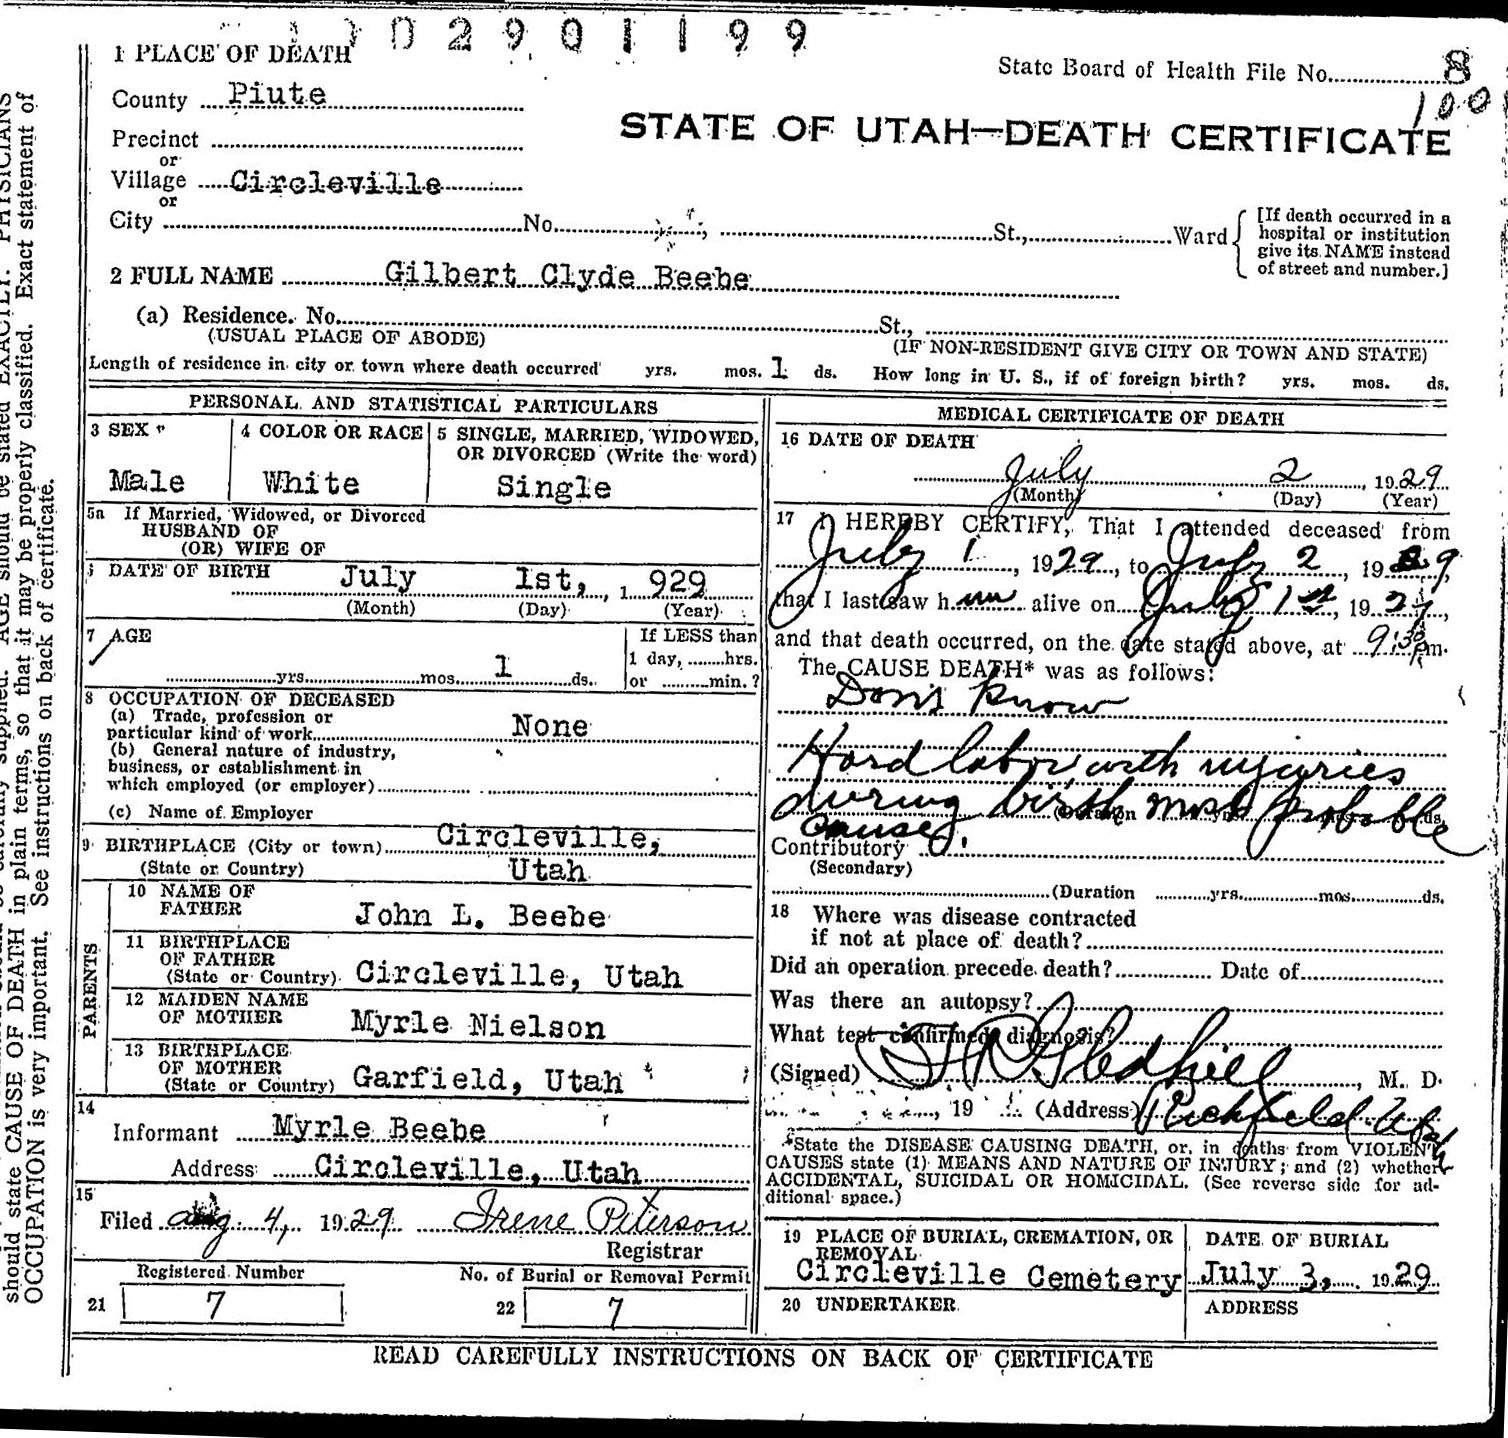 02901199
1 PLACE OF DEATH
State Board of Health File No. 8
100
County Piute
STATE OF UTAH—DEATH CERTIFICATE
Precinct
or
Village Circleville
or
City No. St., Ward
[If death occurred in a hospital or institution give its NAME instead of street and number.]
2 FULL NAME Gilbert Clyde Beebe
(a) Residence. No. St.,
(USUAL PLACE OF ABODE) (IF NON-RESIDENT GIVE CITY OR TOWN AND STATE)
Length of residence in city or town where death occurred yrs. mos. 1 ds. How long in U. S., if of foreign birth? yrs. mos. ds.
PERSONAL AND STATISTICAL PARTICULARS
3 SEX 4 COLOR OR RACE 5 SINGLE, MARRIED, WIDOWED,
OR DIVORCED (Write the word)
Male White Single
5a If Married, Widowed, or Divorced
HUSBAND OF
(OR) WIFE OF
DATE OF BIRTH July 1st, 1929
(Month) (Day) (Year)
7 AGE If LESS than
1 day, hrs.
yrs. mos. 1 ds. or min.?
8 OCCUPATION OF DECEASED
(a) Trade, profession or
particular kind of work None
(b) General nature of industry,
business, or establishment in
which employed (or employer)
(c) Name of Employer
9 BIRTHPLACE (City or town) Circleville,
(State or Country) Utah
PARENTS
10 NAME OF
FATHER John L. Beebe
11 BIRTHPLACE
OF FATHER
(State or Country) Circleville, Utah
12 MAIDEN NAME
OF MOTHER Myrle Nielson
13 BIRTHPLACE
OF MOTHER
(State or Country) Garfield, Utah
14
Informant Myrle Beebe
Address Circleville, Utah
15
Filed Aug. 4, 1929 Irene Peterson
Registrar
Registered Number No. of Burial or Removal Permit
21 7 22 7
MEDICAL CERTIFICATE OF DEATH
16 DATE OF DEATH
July 2, 1929
(Month) (Day) (Year)
17 I HEREBY CERTIFY, That I attended deceased from
July 1, 1929, to July 2, 1929,
that I last saw him alive on July 1st, 1929,
and that death occurred, on the date stated above, at 9:30 pm.
The CAUSE DEATH* was as follows:
Don't Know
Hard labor with injuries
during birth most probable
cause.
(Duration yrs. mos. ds.
Contributory
(Secondary)
(Duration yrs. mos. ds.
18 Where was disease contracted
if not at place of death?
Did an operation precede death? Date of
Was there an autopsy?
What test confirmed diagnosis?
(Signed) Gledhill, M. D.
, 19 (Address) Richfield Utah
*State the DISEASE CAUSING DEATH, or, in deaths from VIOLENT
CAUSES state (1) MEANS AND NATURE OF INJURY; and (2) whether
ACCIDENTAL, SUICIDAL OR HOMICIDAL. (See reverse side for ad-
ditional space.)
19 PLACE OF BURIAL, CREMATION, OR
REMOVAL DATE OF BURIAL
Circleville Cemetery July 3, 1929
20 UNDERTAKER ADDRESS
READ CAREFULLY INSTRUCTIONS ON BACK OF CERTIFICATE
AGE should be stated EXACTLY. PHYSICIANS
should state CAUSE OF DEATH in plain terms, so that it may be properly classified. Exact statement of
OCCUPATION is very important. See instructions on back of certificate.